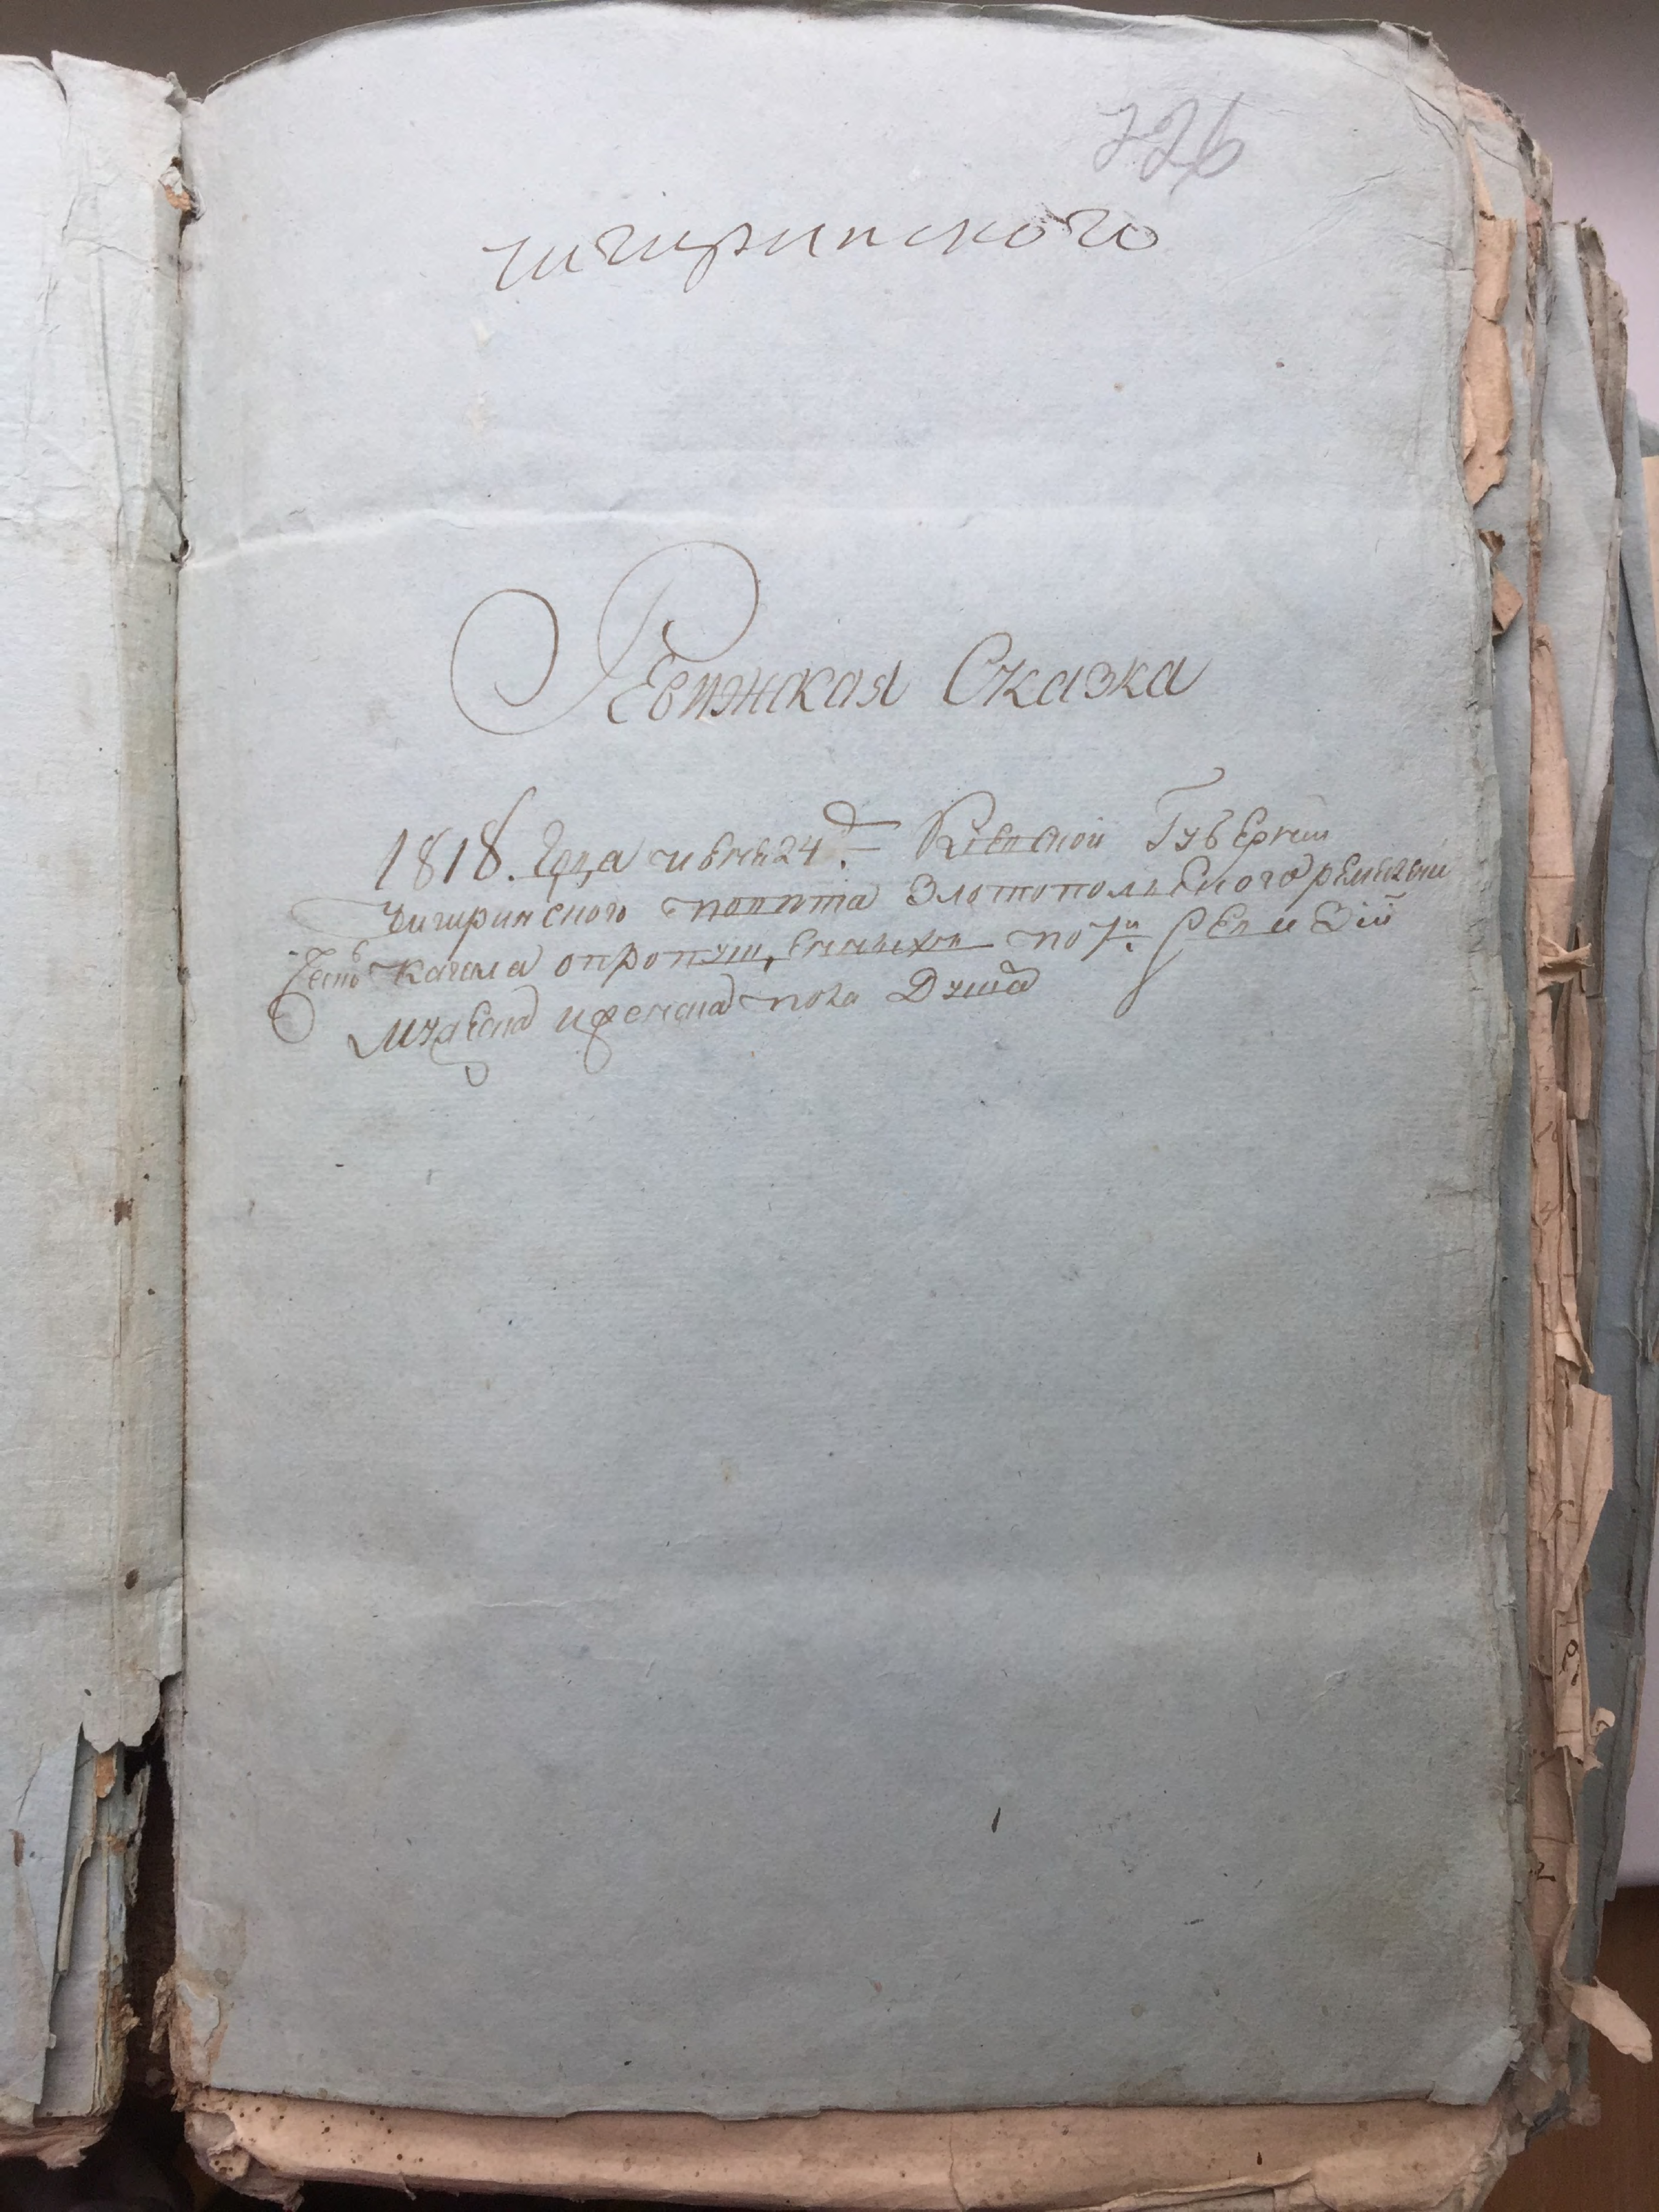 226
чигиринского
Ревижская Сказка
1818. Года июня 24 д. Киевской Губернии
Чигиринского повета Златопольского
Кагала о пропущенных по 7й Ревизий
Мужеска и женска пола Душа